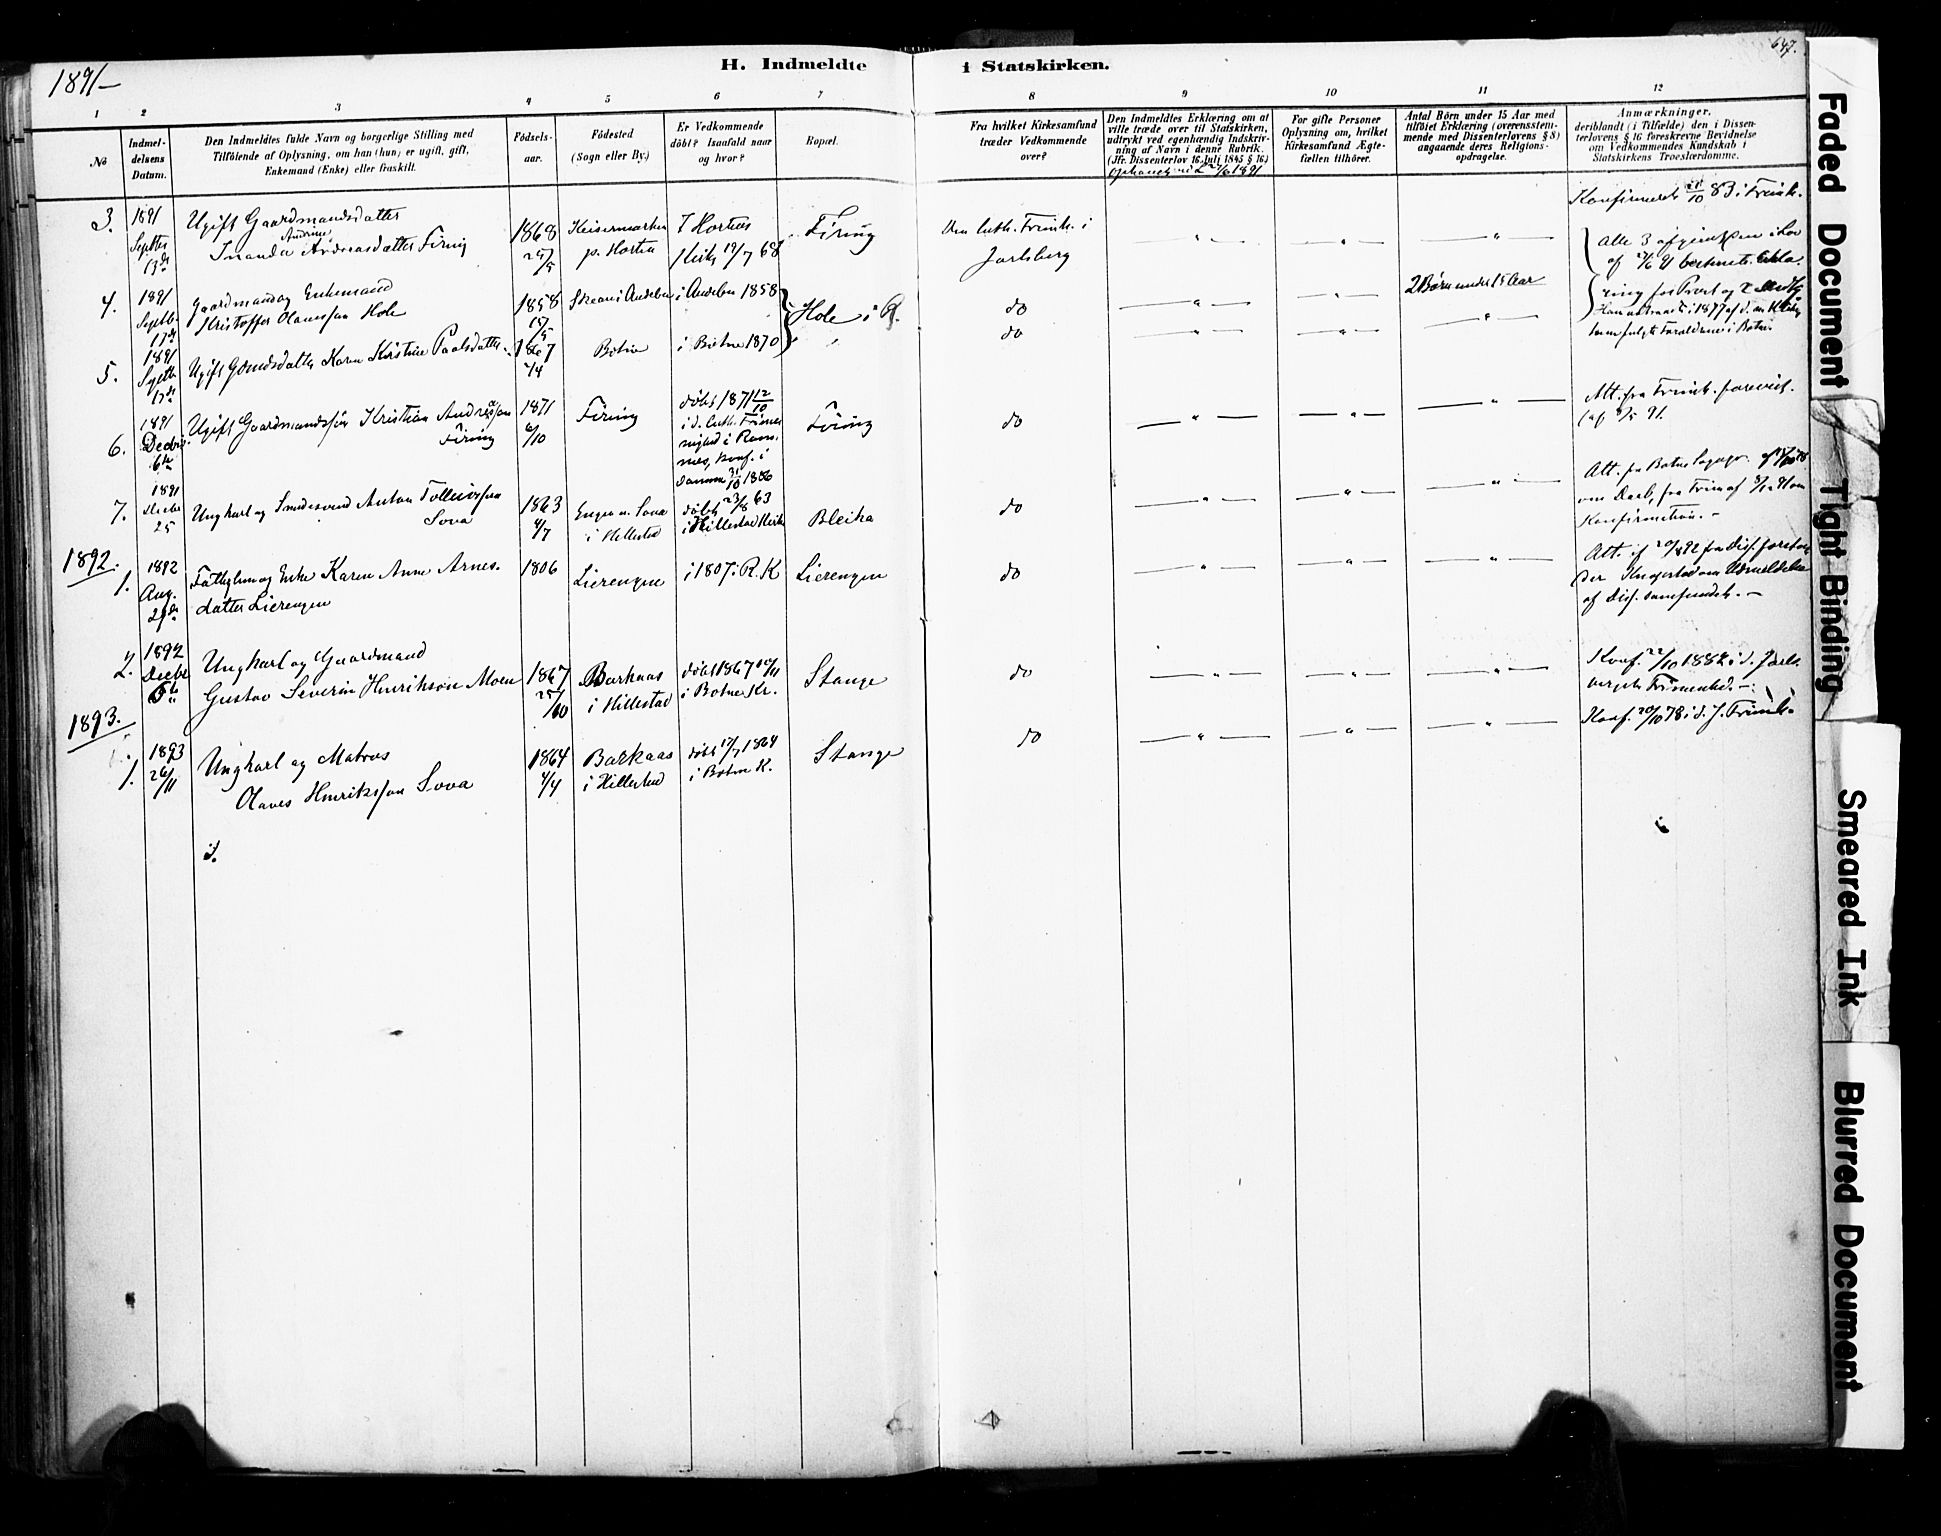 1891-
H. Indmeldte i Statskirken.
647.
1 2 3 4 5 6 7 8 9 10 11 12
No
Indmel-
delsens
Datum.
Den Indmeldtes fulde Navn og borgerlige Stilling med
Tilföiende af Oplysning, om han (hun) er ugift, gift,
Enkemand (Enke) eller fraskilt.
Födsels-
aar.
Födested
(Sogn eller By.)
Er Vedkommende
döbt? Isaafald naar
og hvor?
Bopæl.
Fra hvilket Kirkesamfund
træder Vedkommende
over?
Den Indmeldtes Erklæring om at
ville træde over til Statskirken,
udtrykt ved egenhændig Indskriv-
ning af Navn i denne Rubrik.
(Jfr. Dissenterlov 16 Juli 1845 § 16.)
ophævet ved L 27/6 1891
For gifte Personer
Oplysning om, hvilket
Kirkesamfund Ægte-
fællen tilhörer.
Antal Börn under 15 Aar med
tilföiet Erklæring (overensstem-
mende med Dissenterlovens § 8)
angaaende deres Religions-
opdragelse.
Anmærkninger,
deriblandt (i Tilfælde) den i Dissen-
terlovens § 16 foreskrevne Bevidnelse
om Vedkommendes Kundskab i
Statskirkens Troeslærdomme.
3.
1891
Septbr
13de
Ugift Gaardmandsdatter
Andrine
Andreasdatter Firing
1868
29/5
Keisermarken
p. Horten
I Hortens
Kirke 19/7 68
Firing
Den luth. Frimk. i
Jarlsberg
" " "
Konfirmeret 21/10 83 i Frimk.
Alle 3 afgivet den i Lov
af 27/6 91 Erklæ-
ring for Præst og
4.
1891
Septb.
17de
Gaardmand og Enkemand
Kristoffer Olavesson Hole
1858
15/5
Skeau i Andebu
i Andebu 1858
Hole i R.
do
" "
2 Børn under 15 Aar
5.
1891
Septb
17de
Ugift Gmdsdatter Karen Kristine Paulsdatter
1867
2/4
Botne
i Botne 1870
do
" " "
i 1877 af d.
6.
1891
Decbr.
6te
Ugift Gaardmandssøn Kristian Andreasson
Firing
1871
6/10
Firing
døbt 1871 12/10
i d. luth. Frime-
nighed i Ram-
nes, konf. i
samme 31/10 1886
Firing
do
" " "
Att. fra Frimk. forevist.
7.
1891
Decbr
25
Ungkarl og Smedesvend Anton Tollevsson
Sova
1863
4/7
Engen u. Sova
i Hillestad
døbt 23/8 63
i Hillestad Kirke
Bleika
do
" " "
Att. fra Botne
om Daab, fra Frim af
Konfirmation.-
1892.
1.
1892
Aug.
29de
Fattiglem og Enke Karen Anne Arnes-
datter Lierengen
1806
Lierengen
i 1807 i R. K
Lierengen
do
" " "
Att. af 20/8 92 fra Diss. forstan-
der Knapstad om Udmeldelse
af Diss. samfundet.-
2.
1892
Decbr
5te
Ungkarl og Gaardmand
Gustav Severin Henriksøn Moen
1867
25/10
Barkaas
i Hillestad
døbt 1867 10/11
i Botne Kr.
Stange
do
" " "
Konf. 22/10 1882 i d. Jarls-
bergske Frimenhed.-
1893.
1.
1893
26/11
Ungkarl og Matros
Olaves Henriksson Sova
1864
4/4
Barkaas
i Hillestad
døbt 17/7 1864
i Botne K.
Stange
do
" " "
Konf. 20/10 78 i d. J. Frimk.
Faded Document
Tight Binding
Smeared Ink
Blurred Document